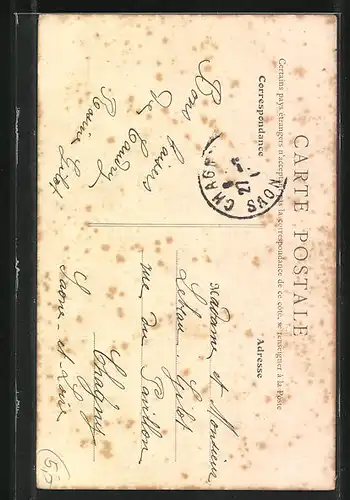 CARTE POSTALE
Certains pays étrangers n'acceptent pas la correspondance de ce côté, se renseigner à la Poste
Correspondance
Adresse
Bons
Baisers
de
Jeanne Gilot
CHAGNY
21
Madame et Monsieur
Gilot
rue du Pavillon
Chagny
Saône-et-Loire